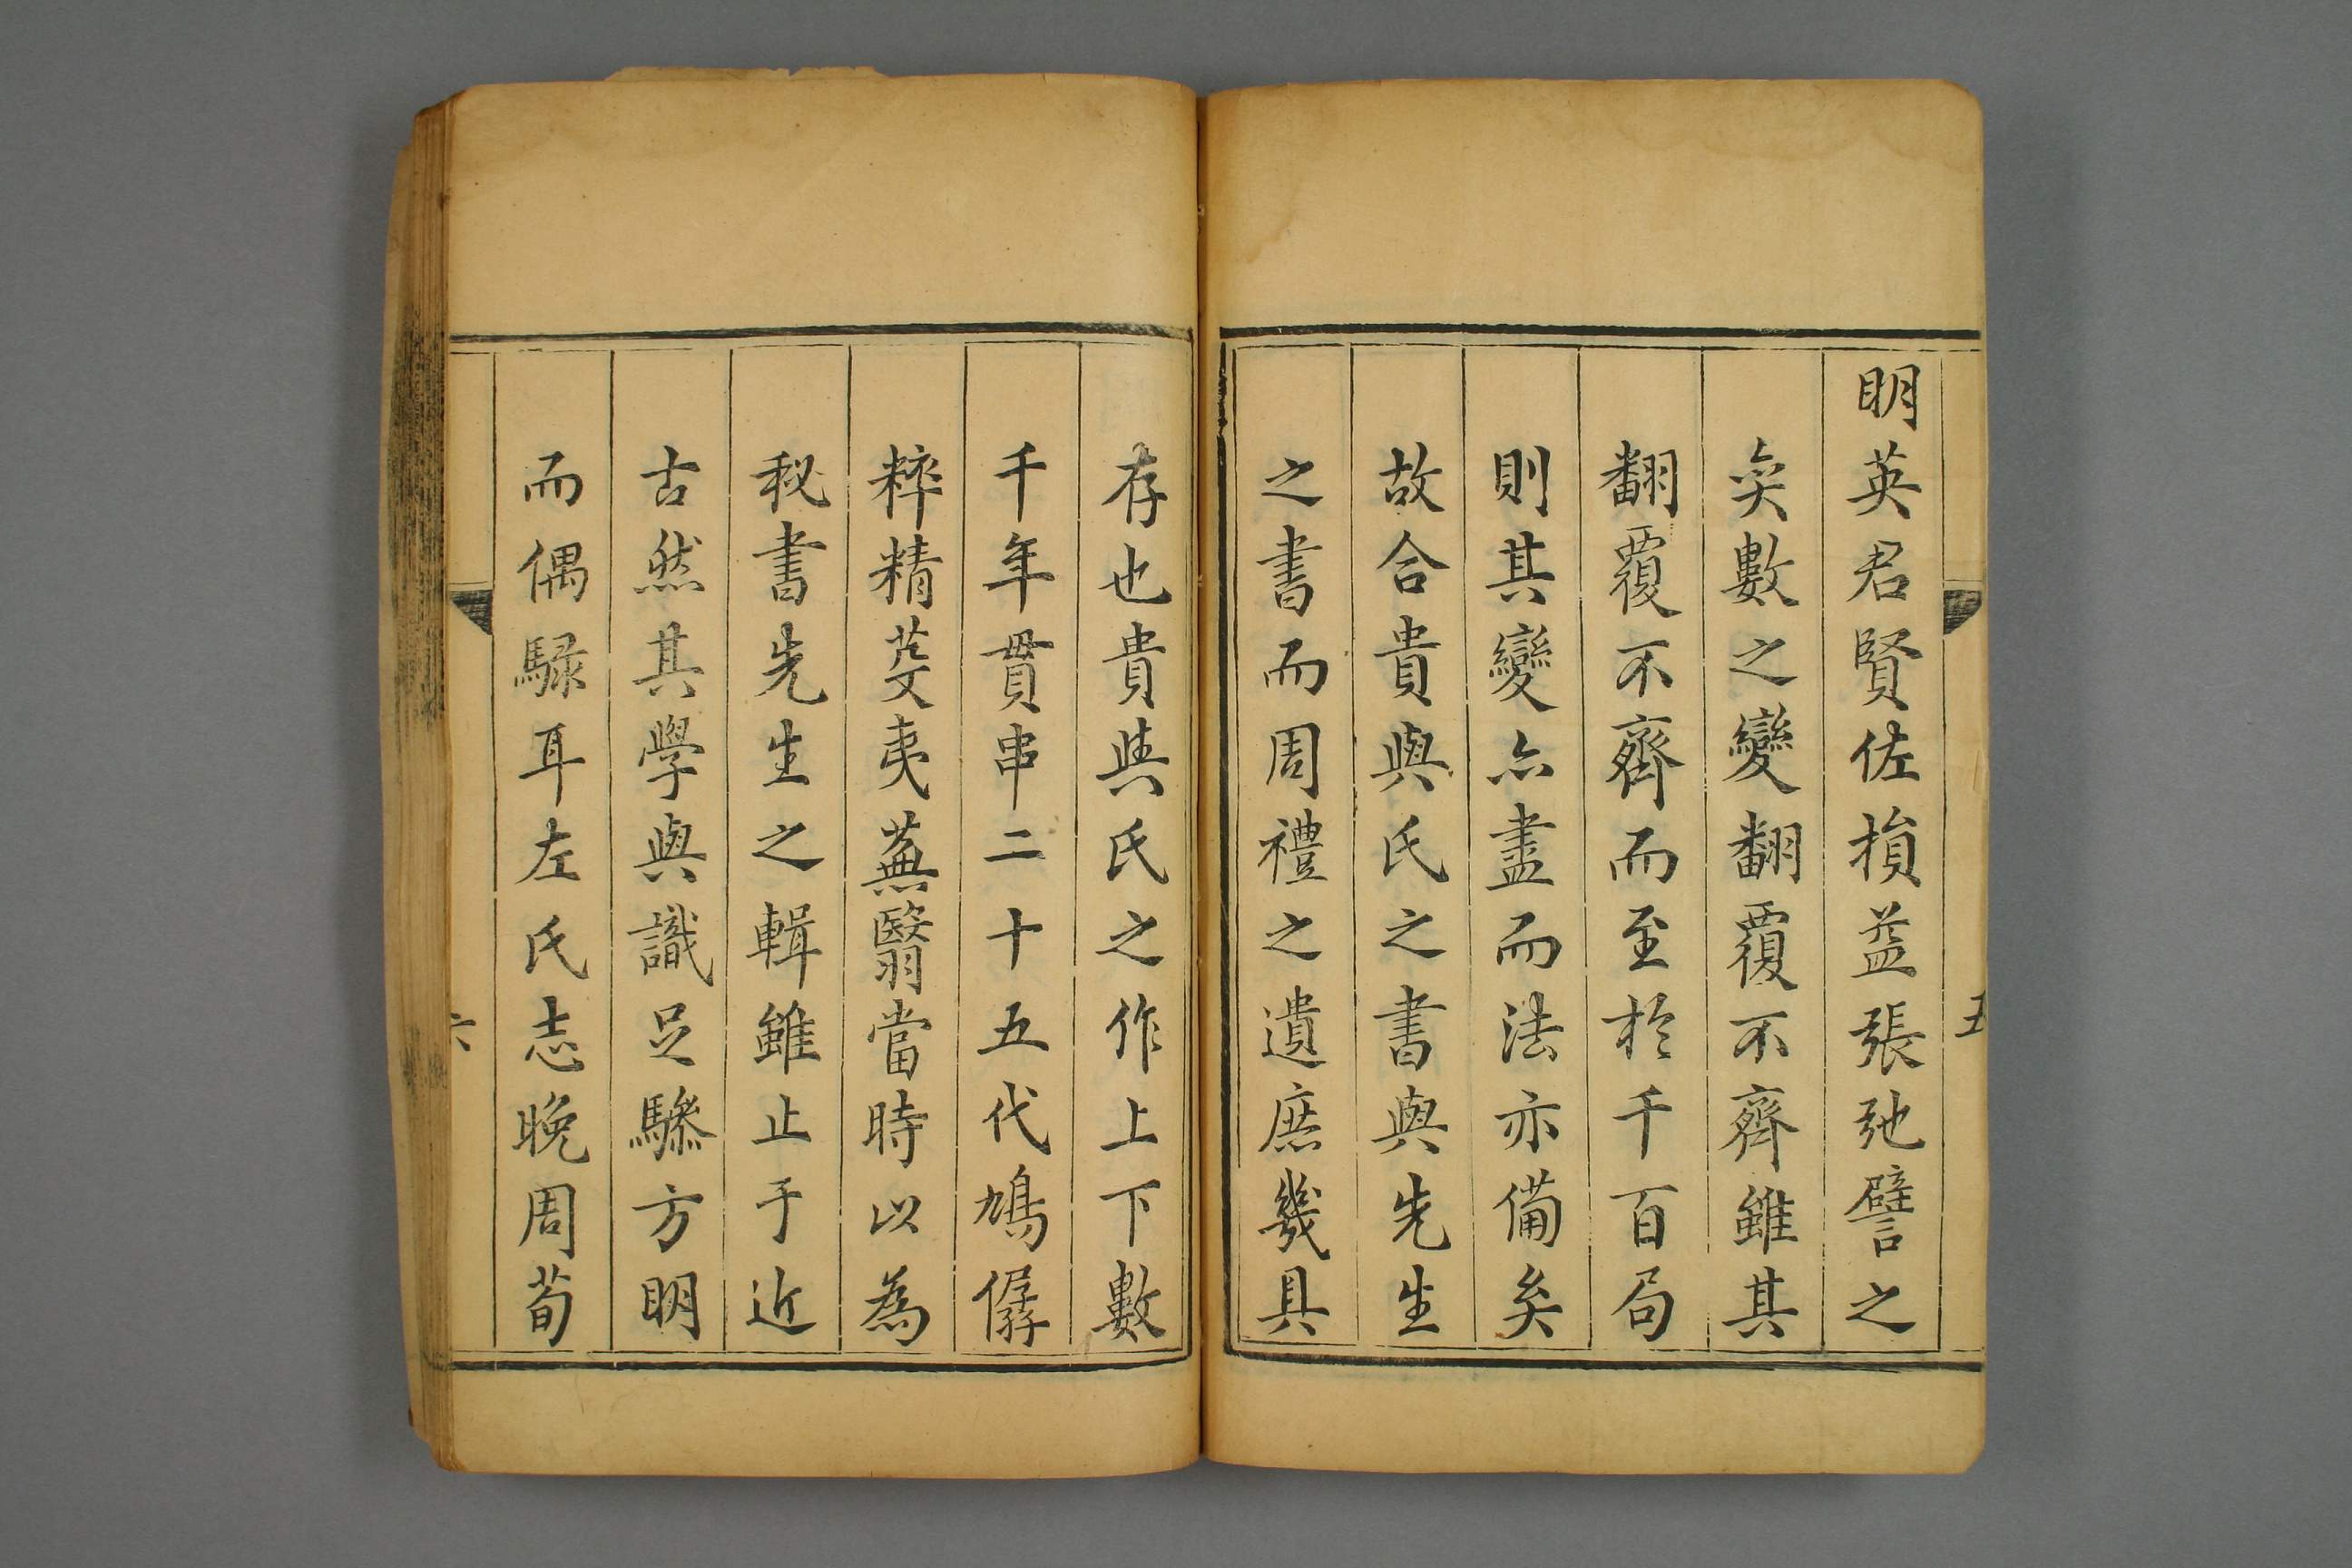 明英君賢佐損益張弛譬之
奕數之變翻覆不齊雖其
翻覆不齊而至於千百局
則其變亦盡而法亦備矣
故合貴與氏之書與先生
之書而周禮之遺庶幾具
存也貴與氏之作上下數
千年貫串二十五代鳩僝
粹精芟夷蕪翳當時以為
秘書先生之輯雖止于近
古然其學與識足驂方明
而偶騄耳左氏志晚周荀
五
六